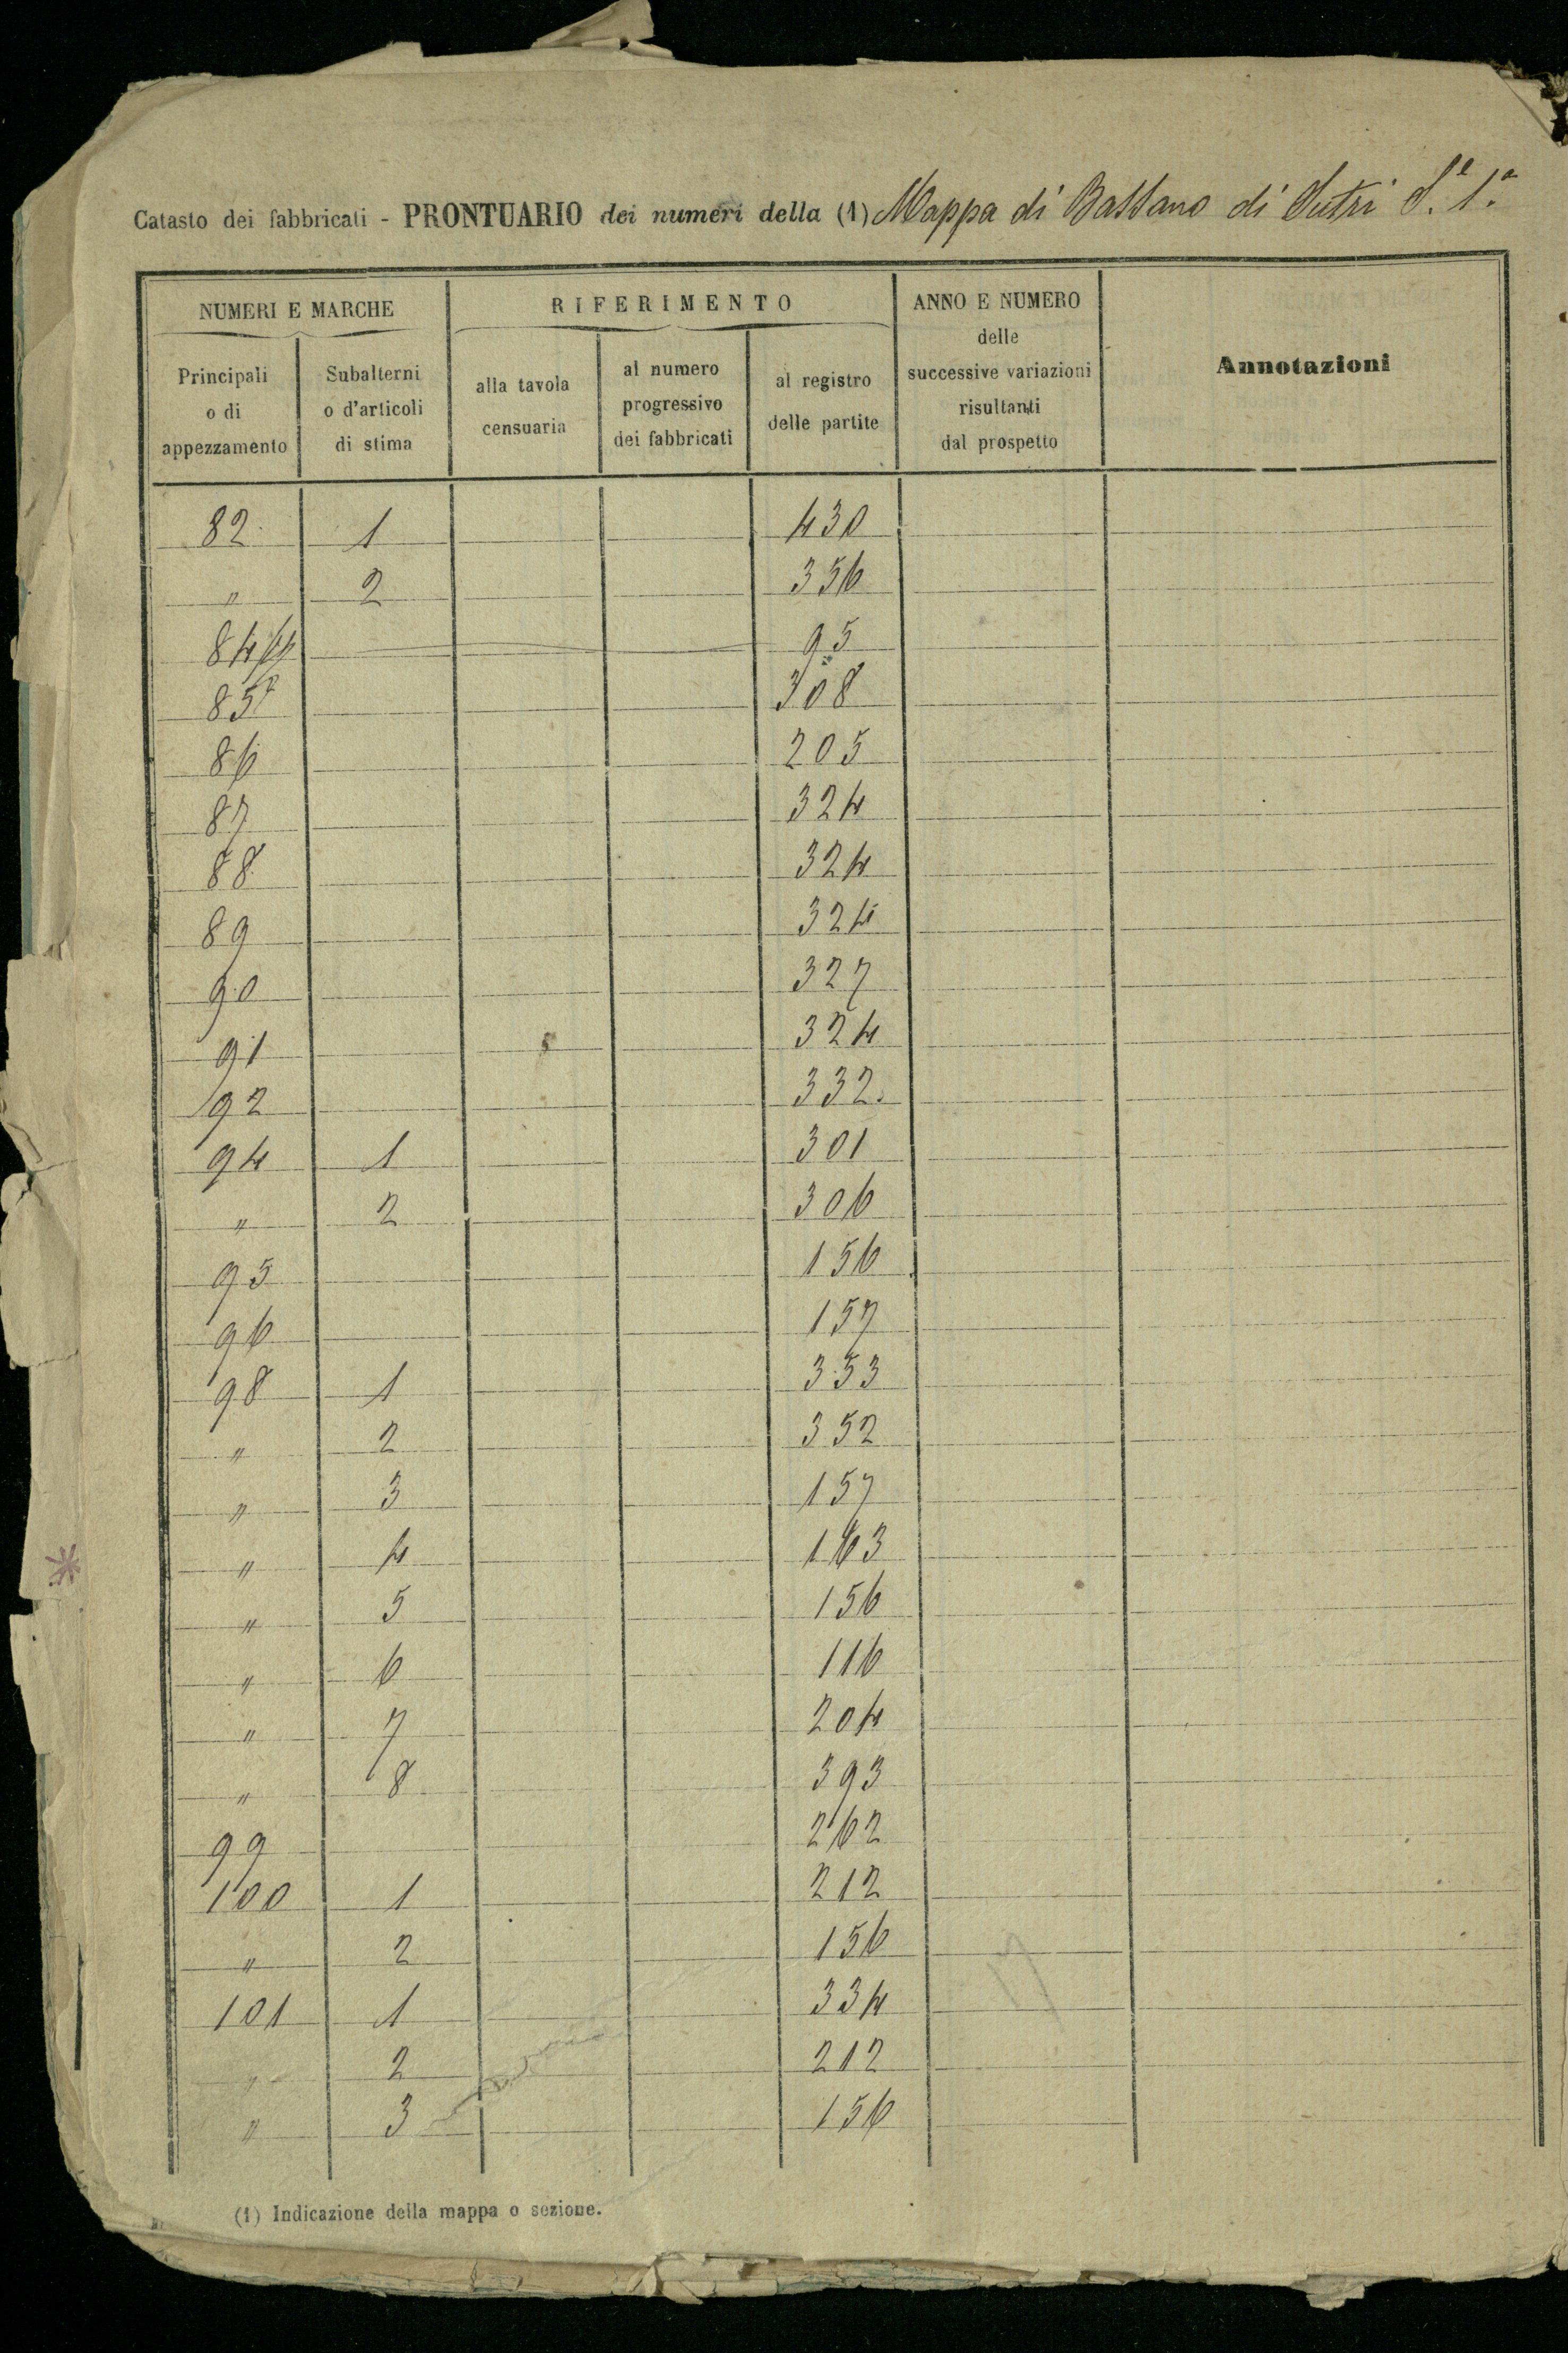 Catasto dei fabbricati - PRONTUARIO dei numeri della (1) Mappa di Bassano di Sutri S.e 1.a
NUMERI E MARCHE RIFERIMENTO ANNO E NUMERO delle successive variazioni risultanti dal prospetto Annotazioni
Principali o di appezzamento Subalterni o d'articoli di stima alla tavola censuaria al numero progressivo dei fabbricati al registro delle partite
82 1 430
" 2 356
84 pp 95
85 308
86 205
87 324
88 324
89 324
90 327
91 324
92 332.
94 1 301
" 2 306
95 156
96 157
98 1 353
" 2 352
" 3 157
" 4 163
" 5 156
" 6 116
" 7 204
" 8 393
99 262
100 1 212
" 2 156
101 1 334
" 2 212
" 3 156
(1) Indicazione della mappa o sezione.